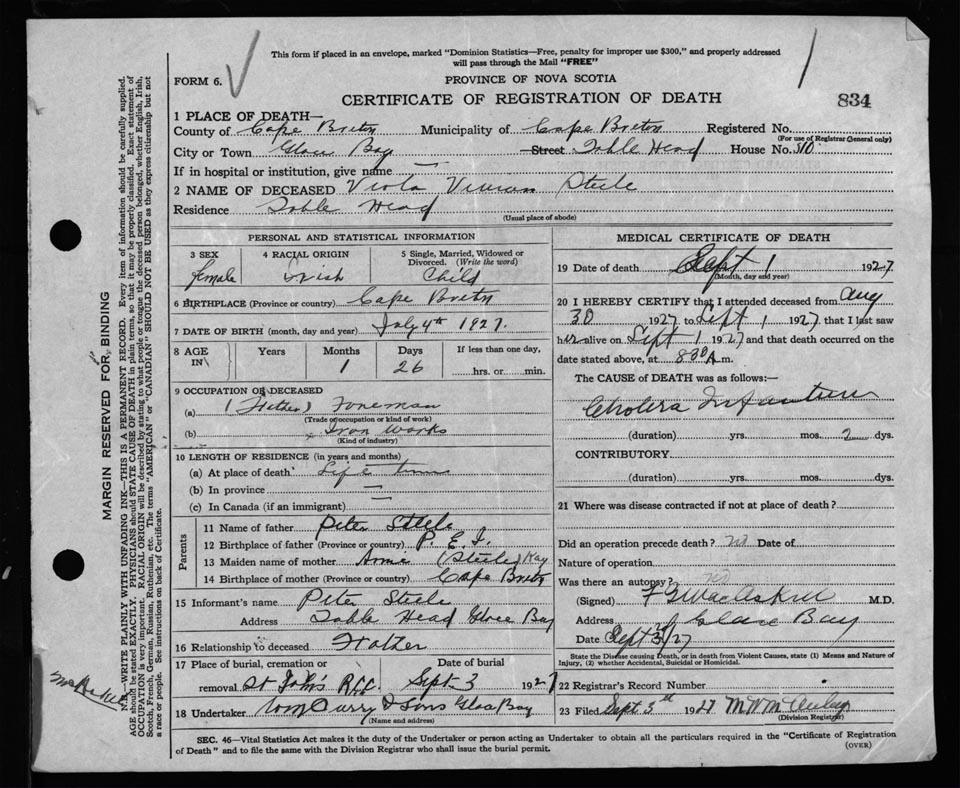 This form if placed in an envelope, marked "Dominion Statistics—Free, penalty for improper use $300," and properly addressed
will pass through the Mail "FREE"
FORM 6.
PROVINCE OF NOVA SCOTIA
CERTIFICATE OF REGISTRATION OF DEATH
834
1 PLACE OF DEATH—
County of Cape Breton Municipality of Cape Breton Registered No.
(For use of Registrar General only)
City or Town Glace Bay Street Table Head House No. 310
If in hospital or institution, give name —
2 NAME OF DECEASED Viola Vivian Steele
Residence Table Head
(Usual place of abode)
PERSONAL AND STATISTICAL INFORMATION
3 SEX 4 RACIAL ORIGIN 5 Single, Married, Widowed or
Divorced. (Write the word)
female Irish Child
6 BIRTHPLACE (Province or country) Cape Breton
7 DATE OF BIRTH (month, day and year) July 4th 1927.
8 AGE IN Years Months Days If less than one day,
1 26 hrs. or min.
9 OCCUPATION OF DECEASED
(a) (Father) Foreman
(Trade or occupation or kind of work)
(b) Iron Works
(Kind of industry)
10 LENGTH OF RESIDENCE (in years and months)
(a) At place of death Life time
(b) In province —
(c) In Canada (if an immigrant) —
Parents
11 Name of father Peter Steele
12 Birthplace of father (Province or country) P. E. I.
13 Maiden name of mother Annie (Steele) Kay
14 Birthplace of mother (Province or country) Cape Breton
15 Informant's name Peter Steele
Address Table Head Glace Bay
16 Relationship to deceased Father
17 Place of burial, cremation or Date of burial
removal St John's Sept. 3 1927
18 Undertaker Wm Curry & Sons Glace Bay
(Name and address)
MEDICAL CERTIFICATE OF DEATH
19 Date of death Sept 1 1927.
(Month, day and year)
20 I HEREBY CERTIFY that I attended deceased from Aug
30 1927 to Sept 1 1927 that I last saw
her alive on Sept 1 1927 and that death occurred on the
date stated above, at 830 A m.
The CAUSE of DEATH was as follows:—
Cholera Infantum
(duration) yrs. mos. 2 dys.
CONTRIBUTORY
(duration) yrs. mos. dys.
21 Where was disease contracted if not at place of death?
Did an operation precede death? no Date of
Nature of operation
Was there an autopsy? no
(Signed) M.D.
Address Glace Bay
Date Sept 3/27
State the Disease causing Death, or in death from Violent Causes, state (1) Means and Nature of
Injury, (2) whether Accidental, Suicidal or Homicidal.
22 Registrar's Record Number
23 Filed Sept 3th 1927
(Division Registrar)
SEC. 46—Vital Statistics Act makes it the duty of the Undertaker or person acting as Undertaker to obtain all the particulars required in the "Certificate of Registration
of Death" and to file the same with the Division Registrar who shall issue the burial permit.
(OVER)
MARGIN RESERVED FOR BINDING
N.B.—WRITE PLAINLY WITH UNFADING INK—THIS IS A PERMANENT RECORD. Every item of information should be carefully supplied.
AGE should be stated EXACTLY. PHYSICIANS should STATE CAUSE OF DEATH in plain terms, so that it may be properly classified. Exact statement of
OCCUPATION is very important. RACIAL ORIGIN will be described by stating to what people or tongue the deceased person belonged, whether English, Irish,
Scotch, French, German, Russian, Ruthenian, etc. The terms "AMERICAN" or "CANADIAN" SHOULD NOT BE USED as they express citizenship but not
a race or people. See instructions on back of Certificate.